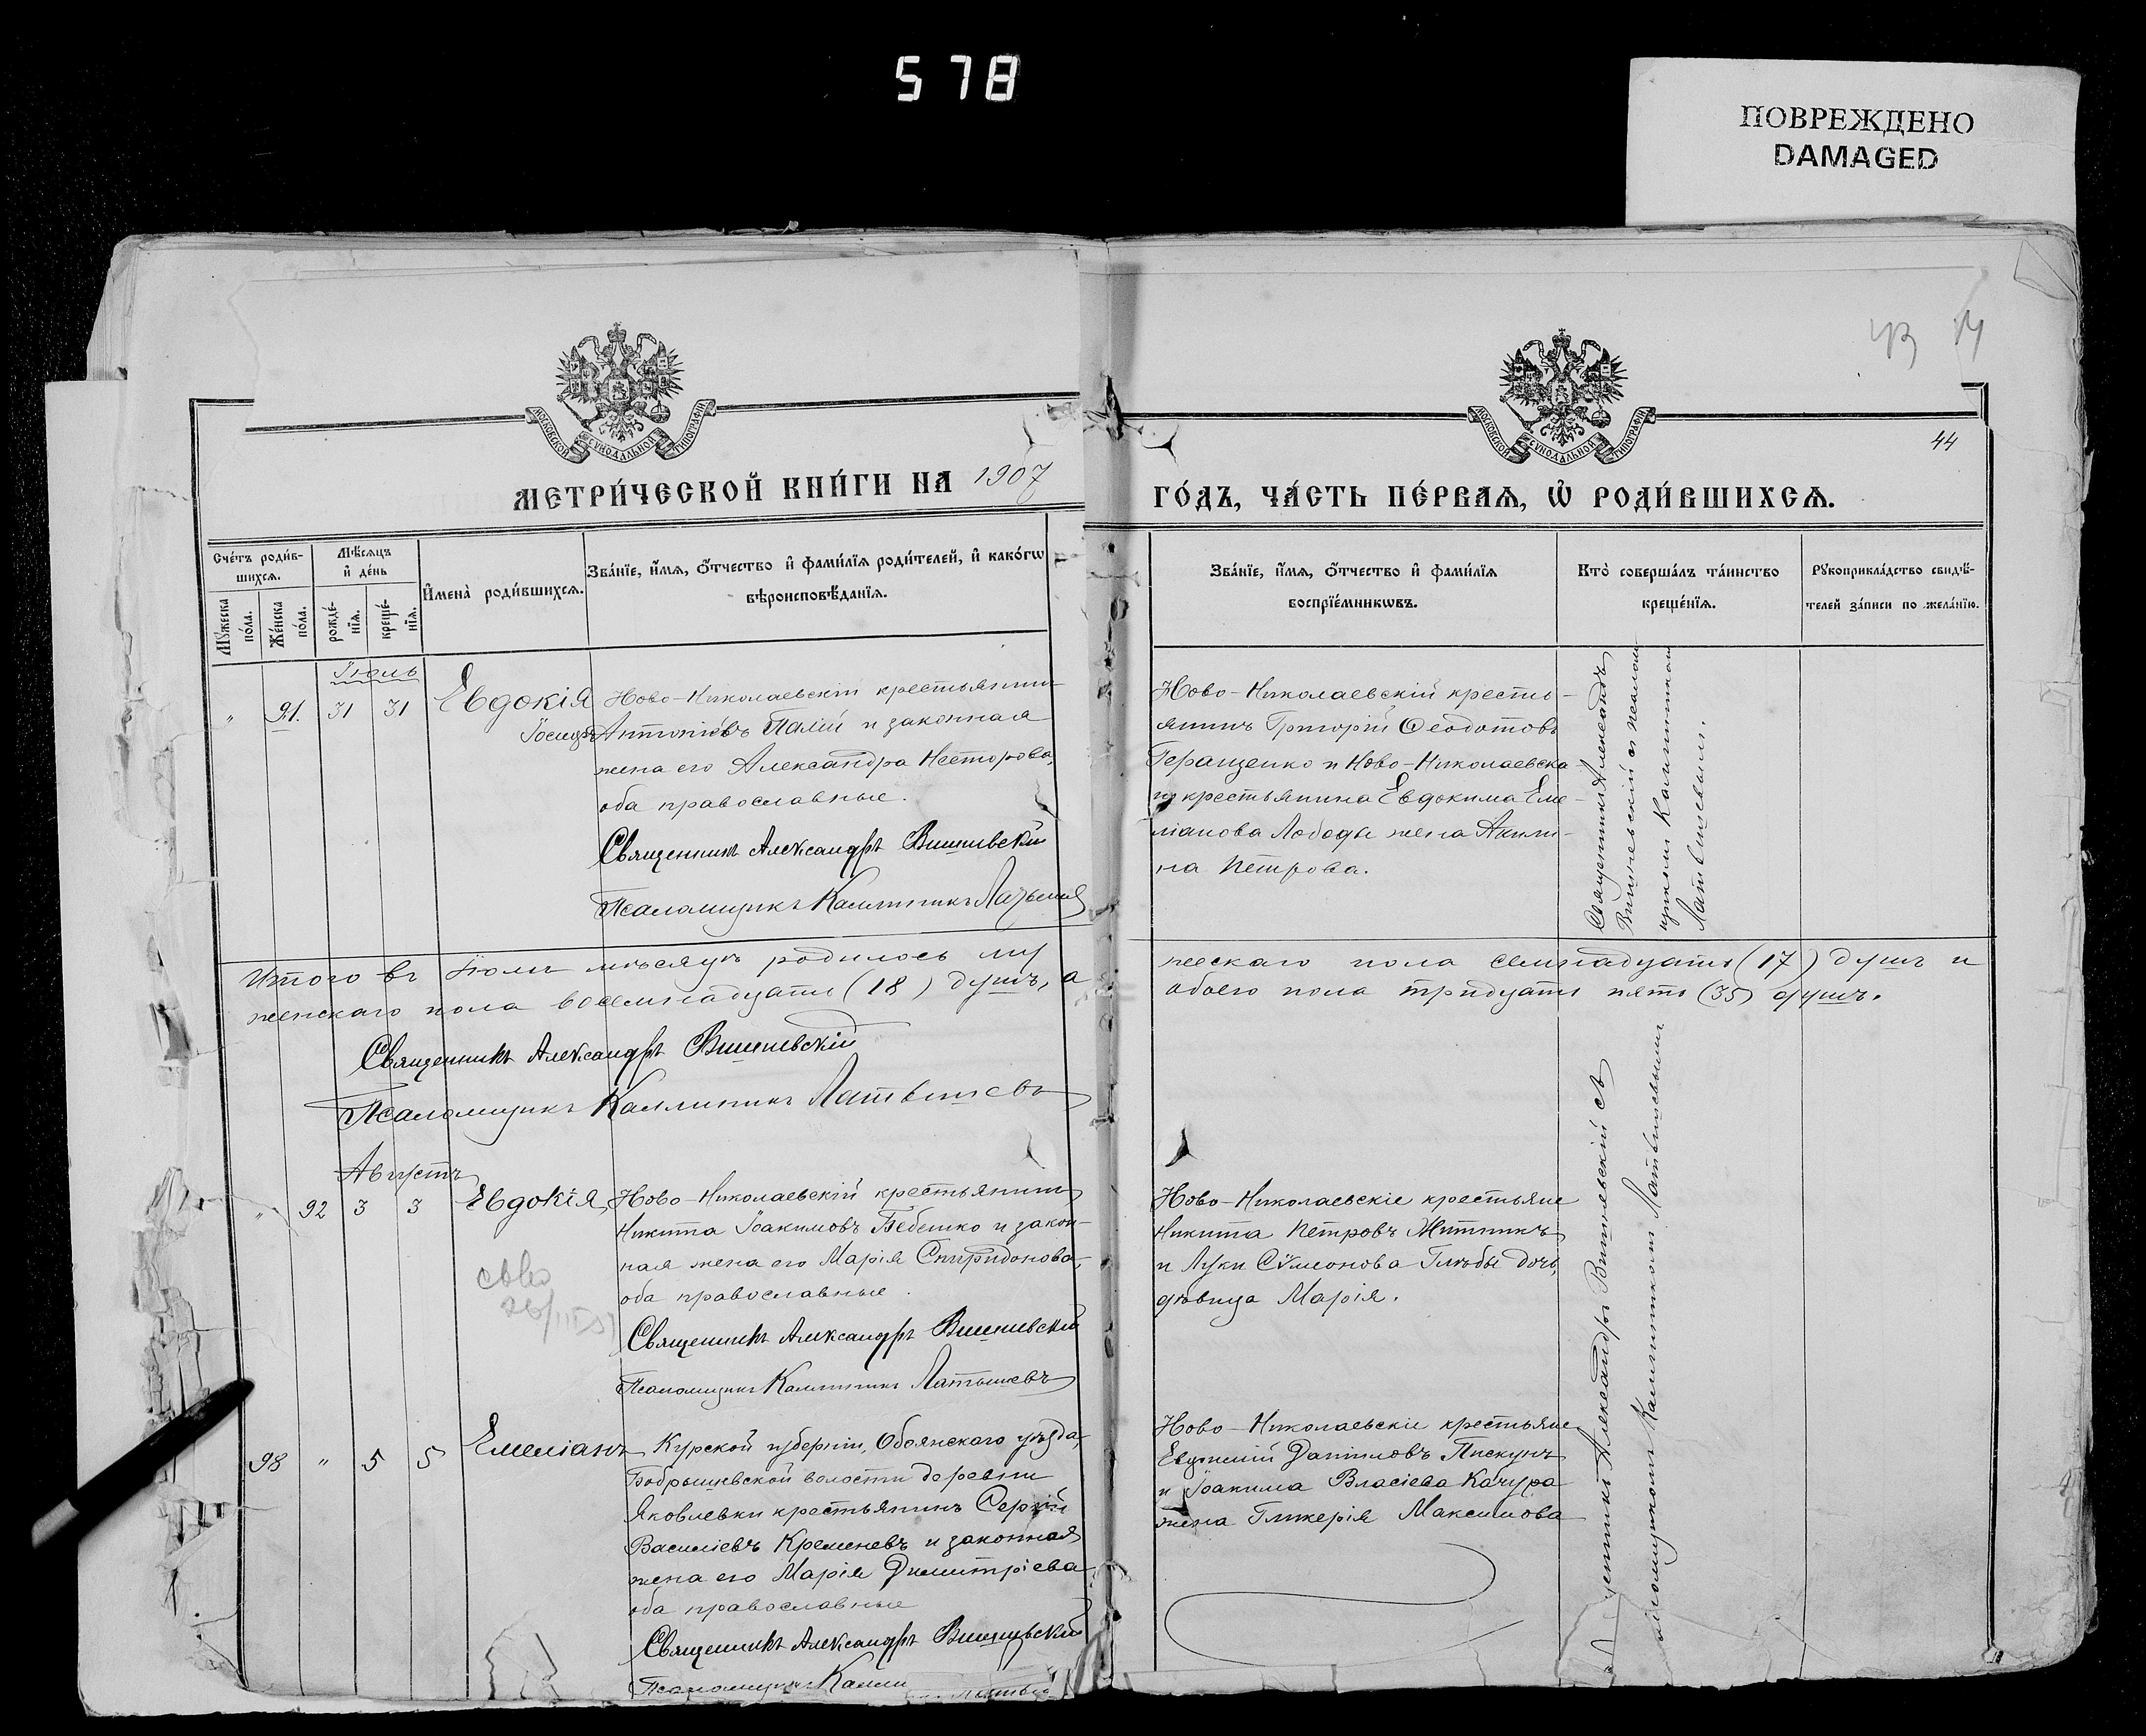 578
ПОВРЕЖДЕНО
DAMAGED
44
МОСКОВСКОЙ СУНОДАЛЬНОЙ ТИПОГРАФІИ
МОСКОВСКОЙ СУНОДАЛЬНОЙ ТИПОГРАФІИ
МЕТРИ́ЧЕСКОЙ КНИ́ГИ НА 1907
ГО́ДЪ, ЧА́СТЬ ПЕ́РВАѦ, Ѡ҆ РОДИ́ВШИХСѦ.
Сче́тъ роди́в-
шихсѧ.
Мѣ́сѧцъ
и҆ де́нь
Мꙋ́жеска
по́ла.
Же́нска
по́ла.
рожде́-
нїѧ.
креще́-
нїѧ.
И҆мена̀ роди́вшихсѧ.
Зва́нїе, и҆́мѧ, ѻ҆́тчество и҆ фами́лїѧ роди́телей, и҆ како́гѡ
вѣроисповѣ́данїѧ.
Зва́нїе, и҆́мѧ, ѻ҆́тчество и҆ фами́лїѧ
воспрїе́мникѡвъ.
Кто̀ соверша́лъ та́инство
креще́нїѧ.
Рꙋкоприкла́дство свидѣ́-
телей за́писи по жела́нїю.
Іюль
" 91. 31 31 Евдокія
Ново-Николаевскій крестьянинъ
Іосифъ Антоніевъ Палій и законная
жена его Александра Несторова,
оба православные.
Священникъ Александръ Вишневскій
Псаломщикъ Каллиникъ Латышев
Ново-Николаевскій кресть-
янинъ Григорій Ѳеодотовъ
Геращенко и Ново-Николаевска-
го крестьянина Евдокима Еме-
ліанова Лободы жена Акили-
на Петрова.
Священникъ Александръ
Вишневскій съ псалом-
щикомъ Каллиникомъ
Латышевымъ.
Итого въ Іюлѣ мѣсяцѣ родилось му
жескаго пола семнадцать (17) душъ и
женскаго пола восемнадцать (18) душъ, а
обоего пола тридцать пять (35) душъ.
Священникъ Александръ Вишневскій
Псаломщикъ Каллиникъ Латышевъ
Августъ
" 92 3 3 Евдокія
Ново-Николаевскій крестьянинъ
Никита Іоакимовъ Бебешко и закон-
ная жена его Марія Спиридонова,
оба православные.
Священникъ Александръ Вишневскій
Псаломщикъ Каллиникъ Латышевъ
Ново-Николаевскіе крестьяне
Никита Петровъ Житникъ
и Луки Сѵмеонова Глыбы дочь,
дѣвица Марія.
98 " 5 5 Емеліанъ
Курской губерніи, Обоянскаго уѣзда,
Бобрышевской волости деревни
Яковлевки крестьянинъ Сергій
Василіевъ Кременевъ и законная
жена его Марія Димитріева
оба православные
Священникъ Александръ Вишневскій
Псаломщикъ Калли
Ново-Николаевскіе крестьяне
Евѳимій Даниловъ Пискунъ
и Іоакима Власіева Качура
жена Гликерія Максимова
Александръ Вишневскій съ
Каллиникомъ Латышевымъ